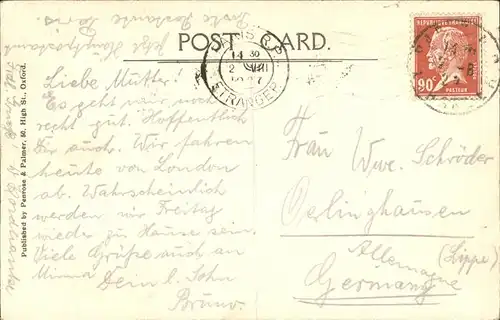 POST CARD.
PARIS R.P.
14 30
2 VIII
ETRANGER
REPUBLIQUE FRANÇAISE
90
PASTEUR
Liebe Mutter!
Es geht mir noch
recht gut. Hoffentlich
Dir auch. Wir fahren
heute von London
ab. Wahrscheinlich
werden wir Freitag
wieder zu Hause sein.
Viele Grüße auch an
Minna Dein l. Sohn
Bruno.
Frau Wwe. Schröder
Oerlinghausen
(Lippe)
Allemagne
Germany
Published by Penrose & Palmer, 50, High St., Oxford.